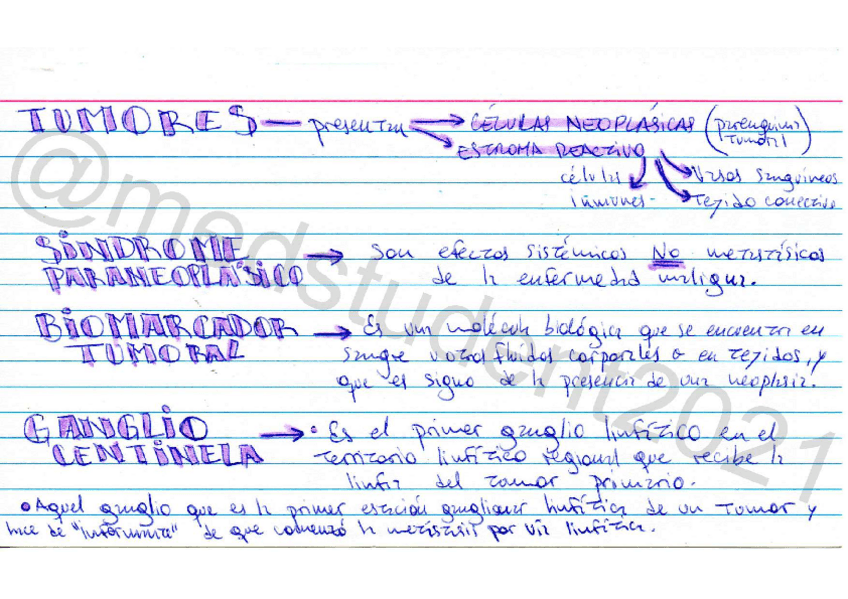 TUMORES — presentan → CÉLULAS NEOPLÁSICAS (parénquima tumoral)
→ ESTROMA REACTIVO
células inmunes
→ Vasos sanguíneos
→ Tejido conectivo
SÍNDROME PARANEOPLÁSICO → Son efectos sistémicos NO metastásicos
de la enfermedad maligna.
BIOMARCADOR TUMORAL → Es una molécula biológica que se encuentra en
sangre u otros fluidos corporales o en tejidos, y
que es signo de la presencia de una neoplasia.
GANGLIO CENTINELA → • Es el primer ganglio linfático en el
territorio linfático regional que recibe la
linfa del tumor primario.
• Aquel ganglio que es la primer estación ganglionar linfática de un tumor y
hace de "informante" de que comenzó la metástasis por vía linfática.
@medstudent2021